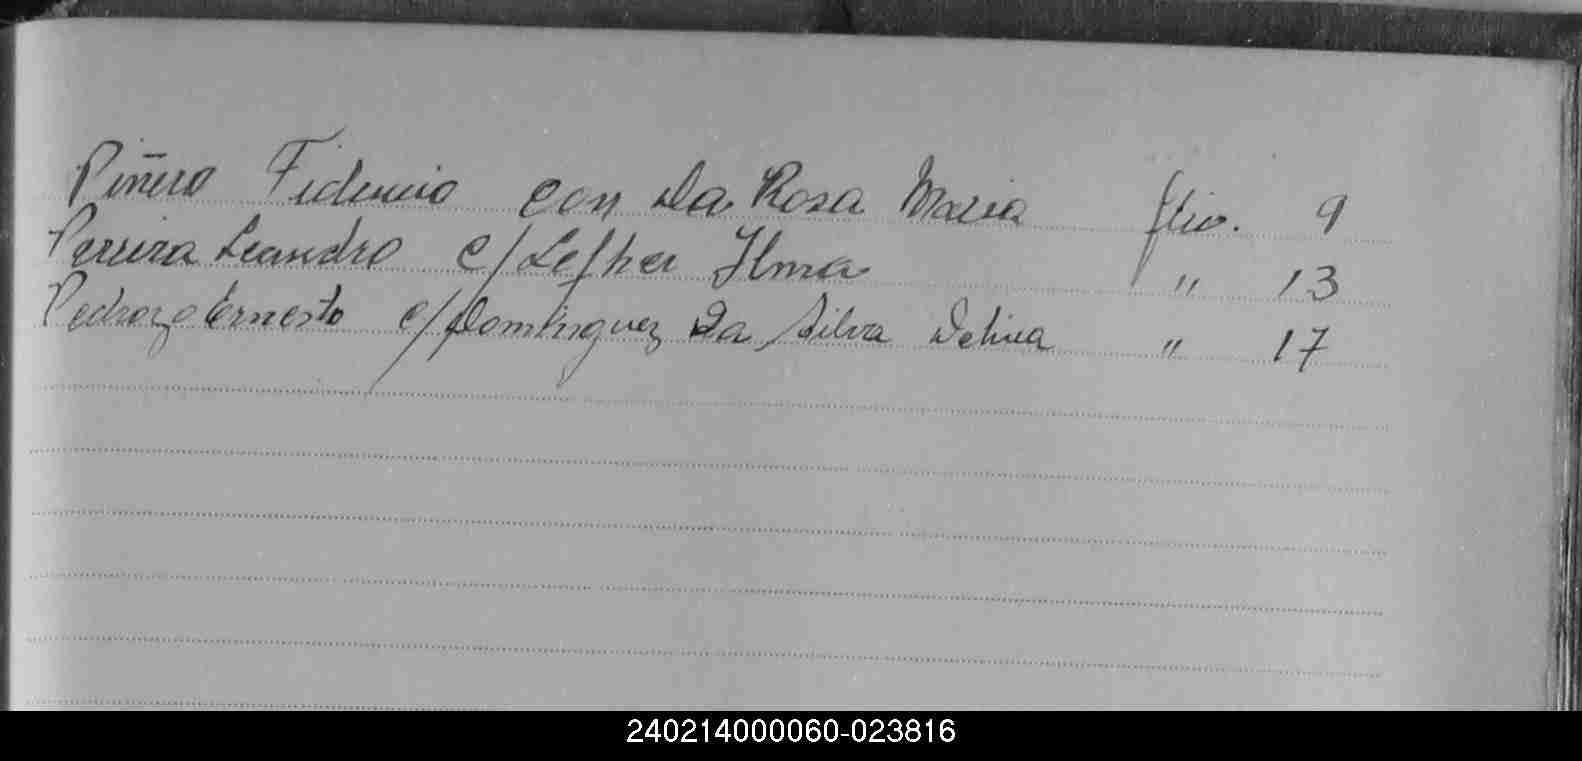 Piñero Fidencio con Da Rosa Maria flio. 9
Perreira Leandro c/ Lefher Ilma " 13
Pedrozo Ernesto c/ Dominguez Da Silva " 17
240214000060-023816